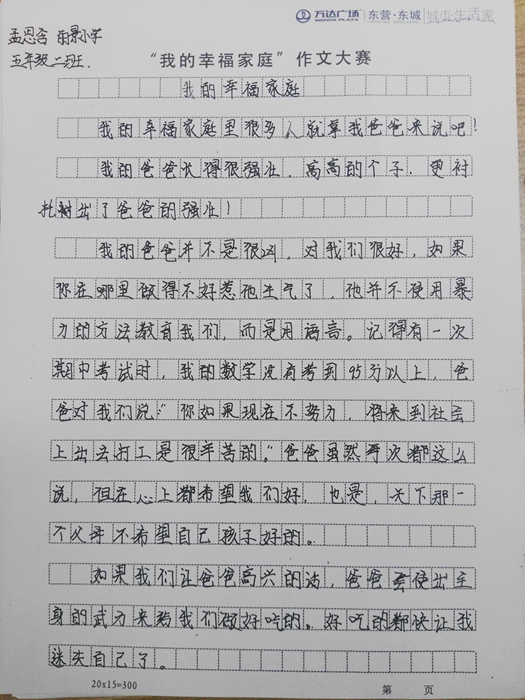 万达广场 WANDA PLAZA 东营·东城 城市·生活家
孟恩含 雨景小学
五年级二班.
“我的幸福家庭”作文大赛
我的幸福家庭
我的幸福家庭里很多人就拿我爸爸来说吧!
我的爸爸长得很强壮,高高的个子,更衬
托出了爸爸的强壮!
我的爸爸并不是很凶,对我们很好,如果
你在哪里做得不好惹他生气了,他并不使用暴
力的方法教育我们,而是用语言。记得有一次
期中考试时,我的数学没有考到95分以上,爸
爸对我们说:“你如果现在不努力,将来到社会
上出去打工是很辛苦的。”爸爸虽然每次都这么
说,但在心上都希望我们好,也是,天下那一
个父母不希望自己孩子好的。
如果我们让爸爸高兴的话,爸爸会使出全
身的武力来给我们做好吃的。好吃的都快让我
迷失自己了。
20x15=300 第 页